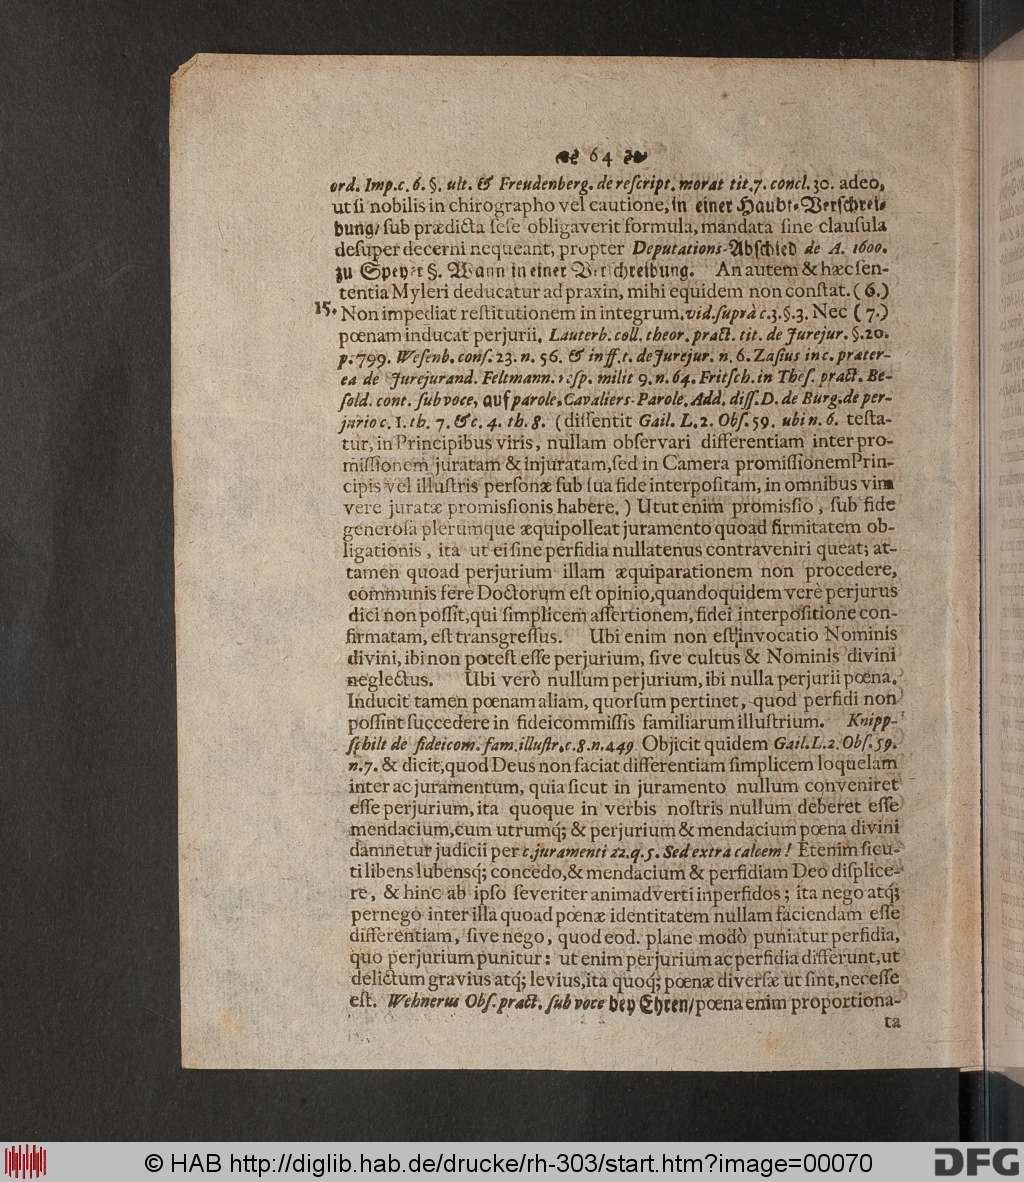 64
ord. Imp.c. 6. §. ult. & Freudenberg. de reſcript. morat tit.7. concl. 30. adeo,
ut ſi nobilis in chirographo vel cautione, in einer Haubt-Verſchrei-
bung/ ſub prædicta ſeſe obligaverit formula, mandata ſine clauſula
deſuper decerni nequeant, propter Deputations-Abſchied de A. 1600.
zu Speyer §. Wann in einer Verſchreibung. An autem & hæc ſen-
tentia Myleri deducatur ad praxin, mihi equidem non conſtat. (6.)
15. Non impediat reſtitutionem in integrum. vid. ſuprà c.3.§.3. Nec (7.)
pœnam inducat perjurii, Lauterb. coll. theor. pract. tit. de Jurejur. §.20.
p. 799. Weſenb. conſ. 23. n. 56. & in ff. t. de Jurejur. n. 6. Zaſius in c. præter-
ea de Jurejurand. Feltmann. reſp. milit 9. n. 64. Fritſch. in Theſ. pract. Be-
ſold. cont. ſub voce, auf parole, Cavaliers-Parole. Add. diſſ. D. de Burg. de per-
jurio c. 1. th. 7. & c. 4. th. 8. (diſſentit Gail. L. 2. Obſ. 59. ubi n. 6. teſta-
tur, in Principibus viris, nullam obſervari differentiam inter pro-
miſſionem juratam & injuratam, ſed in Camera promiſſionem Prin-
cipis vel illuſtris perſonæ ſub ſua fide interpoſitam, in omnibus vim
vere juratæ promiſſionis habere. ) Utut enim promiſſio, ſub fide
generoſa plerumque æquipolleat juramento quoad firmitatem ob-
ligationis, ita ut ei ſine perfidia nullatenus contraveniri queat; at-
tamen quoad perjurium illam æquiparationem non procedere,
communis fere Doctorum eſt opinio, quandoquidem verè perjurus
dici non poſſit, qui ſimplicem aſſertionem, fidei interpoſitione con-
firmatam, eſt transgreſſus. Ubi enim non eſt invocatio Nominis
divini, ibi non poteſt eſſe perjurium, ſive cultus & Nominis divini
neglectus. Ubi verò nullum perjurium, ibi nulla perjurii pœna.
Inducit tamen pœnam aliam, quorſum pertinet, quod perfidi non
poſſint ſuccedere in fideicommiſſis familiarum illuſtrium. Knipp-
ſchilt de fideicom. fam. illuſtr. c. 8. n. 449. Objicit quidem Gail. L. 2. Obſ. 59.
n. 7. & dicit, quod Deus non faciat differentiam ſimplicem loquelam
inter ac juramentum, quia ſicut in juramento nullum conveniret
eſſe perjurium, ita quoque in verbis noſtris nullum deberet eſſe
mendacium, cum utrumq́; & perjurium & mendacium pœna divini
damnetur judicii per c. juramenti 22. q. 5. Sed extra calcem! Etenim ſicu-
ti libens lubensq́; concedo, & mendacium & perfidiam Deo diſplice-
re, & hinc ab ipſo ſeveriter animadverti in perfidos; ita nego atq́;
pernego inter illa quoad pœnæ identitatem nullam faciendam eſſe
differentiam, ſive nego, quod eod. plane modò puniatur perfidia,
quo perjurium punitur: ut enim perjurium ac perfidia differunt, ut
delictum gravius atq́; levius, ita quoq́; pœnæ diverſæ ut ſint, neceſſe
eſt. Wehnerus Obſ. pract. ſub voce bey Ehren/ pœna enim proportiona-
ta
© HAB http://diglib.hab.de/drucke/rh-303/start.htm?image=00070
DFG